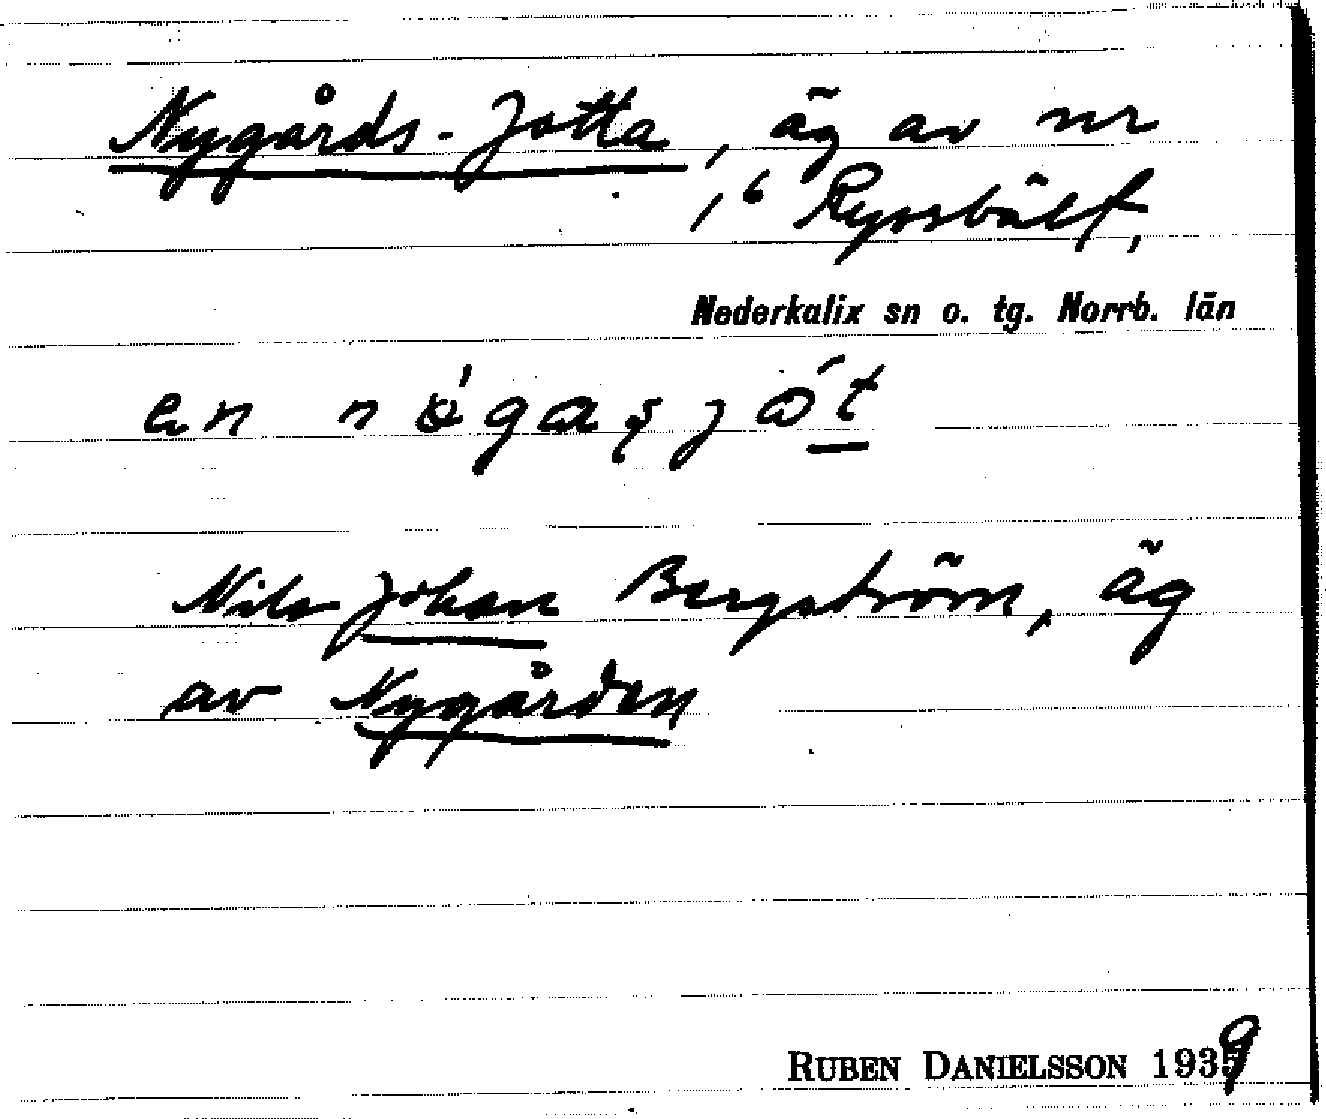 Nygårds-Jotta, äg av nr
1,6 Ryssbält,
Nederkalix sn o. tg. Norrb. län
en
Nils Johan Bergström, äg
av Nygården
RUBEN DANIELSSON 1939